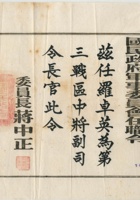 國民政府軍事委員會任職令
茲任羅卓英為第
三戰區中將副司
令長官此令
委員長蔣中正